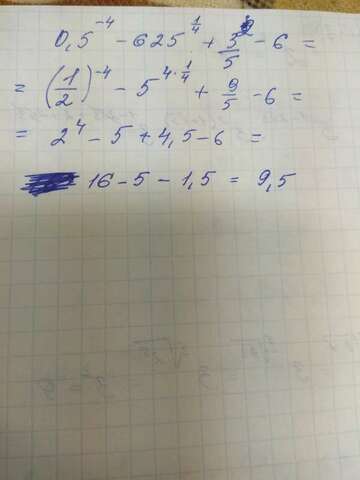 0,5^{-4} - 625^{\frac{1}{4}} + \frac{3^2}{5} - 6 =
= (\frac{1}{2})^{-4} - 5^{4 \cdot \frac{1}{4}} + \frac{9}{5} - 6 =
= 2^4 - 5 + 4,5 - 6 =
16 - 5 - 1,5 = 9,5